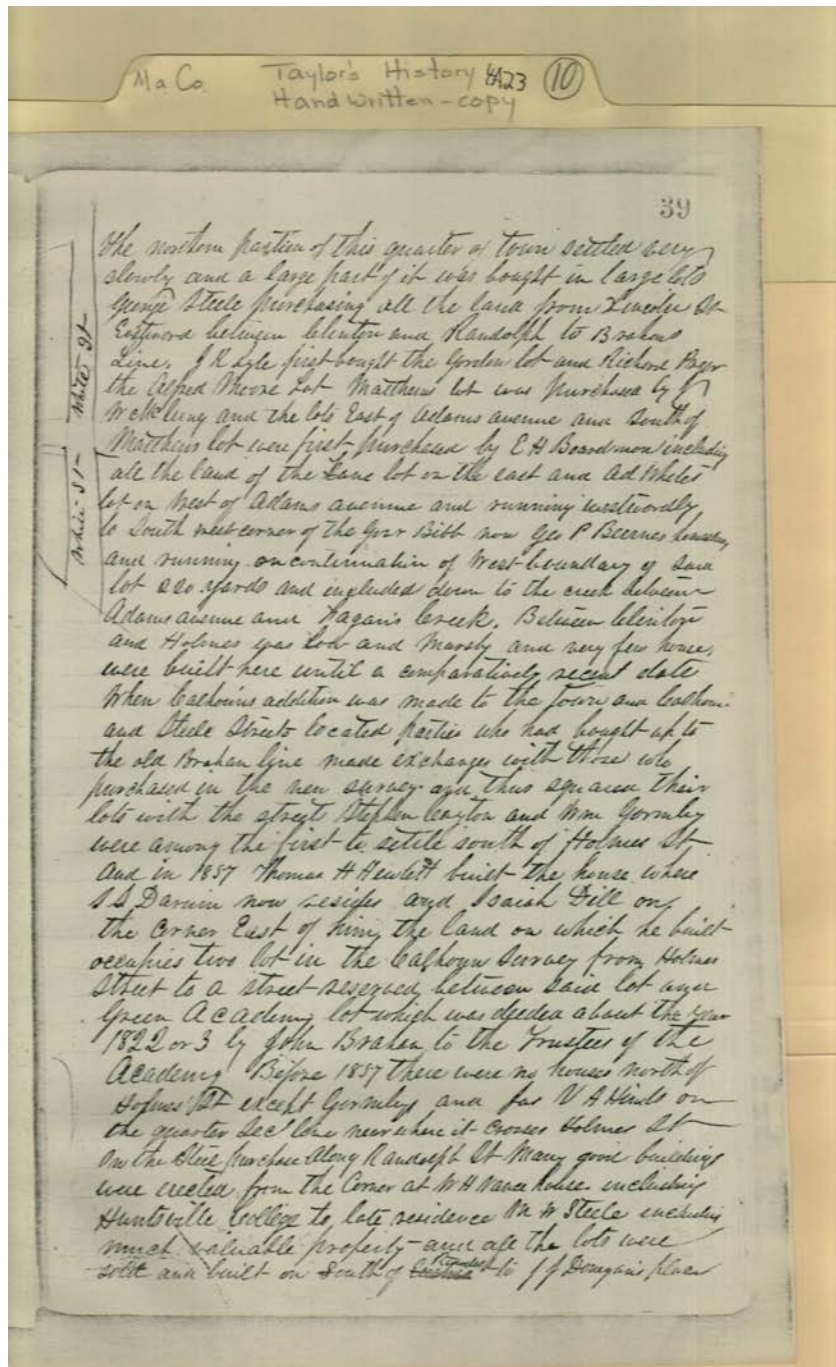 Ma Co Taylor's History 4A23 10
Hand written - copy
39
White St
White St
The northern portion of this quarter of town settled very
slowly and a large part of it was bought in large lots
George Steele purchasing all the land from Lincoln St
Eastward between Clinton and Randolph to Brahans
Line. J K Lyle first bought the Gordon lot and Richard
the Alfred Moore Lot Matthews lot was purchased by J
McClung and the lots East of Adams avenue and South of
Matthews lot were first purchased by E H Boardman including
all the land of the Lane lot on the east and Ad Whites
lot on West of Adams avenue and running westwardly
to South west corner of the Govr Bibb now Geo P Beirnes
and running on continuation of West boundary of said
lot 220 yards and included down to the creek between
Adams avenue and Fagans Creek. Between Clinton
and Holmes was low and Marshy and very few house,
were built here until a comparatively recent date
When Calhouns addition was made to the town and Calhoun
and Steele Streets located parties who had bought up to
the old Brahan line made exchanges with those who
purchased in the new survey and thus squared their
lots with the street Stephen and Wm Gormley
were among the first to settle south of Holmes St
and in 1837 Thomas H Hewlett built the house where
S S Darwin now resides and Isaiah Dill on
the Corner East of him, the land on which he built
occupies two lot in the Calhoun Survey from Holmes
Street to a street reserved between said lot and
Green Academy lot which was deeded about the year
1822 or 3 by John Brahan to the Trustees of the
Academy Before 1837 there were no houses north of
Holmes St except Gormleys and Jas V A Hinds on
the quarter Sec line near where it crosses Holmes St
On the Steele purchase Along Randolph St Many good buildings
were erected from the Corner at W H Vance house including
Huntsville College to late residence W Steele including
much valuable property and all the lots were
sold and built on South of Randolph to J J Donegans place